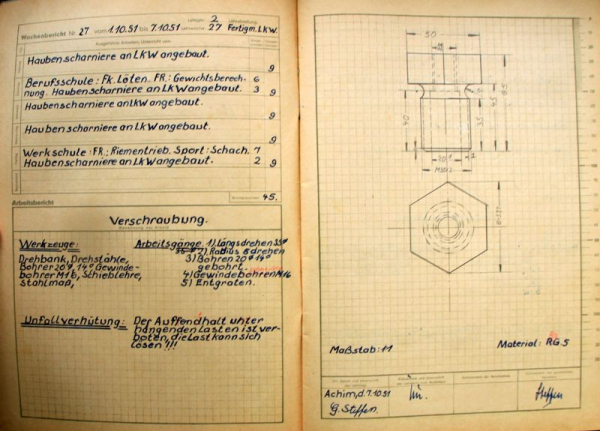 Wochenbericht Nr 27 vom 1.10.51 bis 7.10.51 27 2 Fertigm. LKW.
Haubenscharniere an LKW angebaut.
9
Berufsschule: Fk. Löten. FR.: Gewichtsberech- 6
nung. Haubenscharniere an LKW angebaut. 3 9
Haubenscharniere an LKW angebaut.
9
Haubenscharniere an LKW angebaut.
9
Werkschule: FR.; Riementrieb. Sport: Schach. 7
Haubenscharniere an LKW angebaut. 2 9
45.
Arbeitsbericht
Verschraubung.
Werkzeuge: Arbeitsgänge. 1) Längsdrehen 35⌀
2) Radius 5 drehen
Drehbank, Drehstähle, 3) Bohren 20⌀ 14⌀
Bohrer 20⌀, 14⌀ Gewinde- gebohrt.
bohrer M16, Schieblehre, 4) Gewindebohren M16
Stahlmaß, 5) Entgraten.
Unfallverhütung: Der Auffendhalt unter
hängenden Lasten ist ver-
boten, die Last kann sich
lösen !!!
50
40
35
45
65
20⌀
Maßstab: 1:1
Material: RG. 5
Achim, d. 7.10.51
G. Steffen.
Steffen